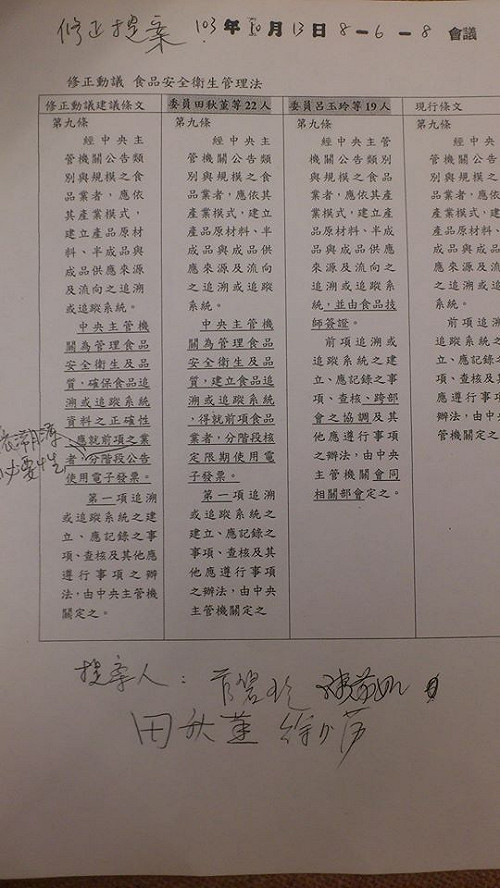 修正提案 103年10月13日8-6-8會議
修正動議 食品安全衛生管理法
修正動議建議條文
第九條
經中央主
管機關公告類
別與規模之食
品業者，應依
其產業模式，
建立產品原材
料、半成品與
成品供應來源
及流向之追溯
或追蹤系統。
中央主管機
關為管理食品
安全衛生及品
質，確保食品追
溯或追蹤系統
資料之正確性
，應就前項之業
者，分階段公告
使用電子發票。
第一項追溯
或追蹤系統之建
立、應記錄之事
項、查核及其他應
遵行事項之辦
法，由中央主管機
關定之。
必要性
委員田秋堇等22人
第九條
經中央主
管機關公告類
別與規模之食
品業者，應依其
產業模式，建立
產品原材料、半
成品與成品供
應來源及流向
之追溯或追蹤
系統。
中央主管機
關為管理食品
安全衛生及品
質，建立食品追
溯或追蹤系統
，得就前項食品
業者，分階段核
定限期使用電
子發票。
第一項追溯
或追蹤系統之
建立、應記錄之
事項、查核及其
他應遵行事項
之辦法，由中央
主管機關定之
委員呂玉玲等19人
第九條
經中央主管
機關公告類別
與規模之食品
業者，應依其產
業模式，建立產
品原材料、半成
品與成品供應
來源及流向之
追溯或追蹤系
統，並由食品技
師簽證。
前項追溯或
追蹤系統之建
立、應記錄之事
項、查核、跨部
會之協調及其
他應遵行事項
之辦法，由中央
主管機關會同
相關部會定之。
現行條文
第九條
經中央
管機關公
別與規模
品業者，應
產業模式
產品原材
成品與成
應來源及
之追溯或
系統。
前項追
或追蹤系
立、應記
項、查核
應遵行事
辦法，由中
管機關定
提案人：
田秋堇